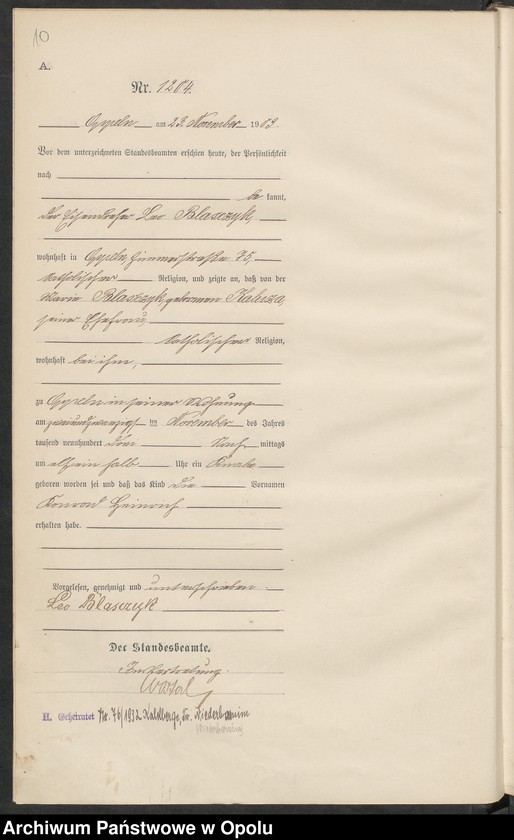 10
A.
Nr. 1204.
Oppeln am 23. November 1903.
Vor dem unterzeichneten Standesbeamten erschien heute, der Persönlichkeit
nach
be kannt,
der Eisendreher Leo Blasczyk,
wohnhaft in Oppeln, 75,
katholischer Religion, und zeigte an, daß von der
Maria Blasczyk, geborenen Kalusza,
seiner Ehefrau,
katholischer Religion,
wohnhaft bei ihm,
zu Oppeln in seiner Wohnung
am zweiundzwanzigsten November des Jahres
tausend neunhundert drei Nach mittags
um elfeinhalb Uhr ein Knabe
geboren worden sei und daß das Kind die Vornamen
Konrad Heinrich
erhalten habe.
Vorgelesen, genehmigt und unterschrieben
Leo Blasczyk
Der Standesbeamte.
In Vertretung.
II. Geheiratet Nr. 76/1932 Kalkberge, Kr. Niederbarnim
Niederbarnim
Archiwum Państwowe w Opolu